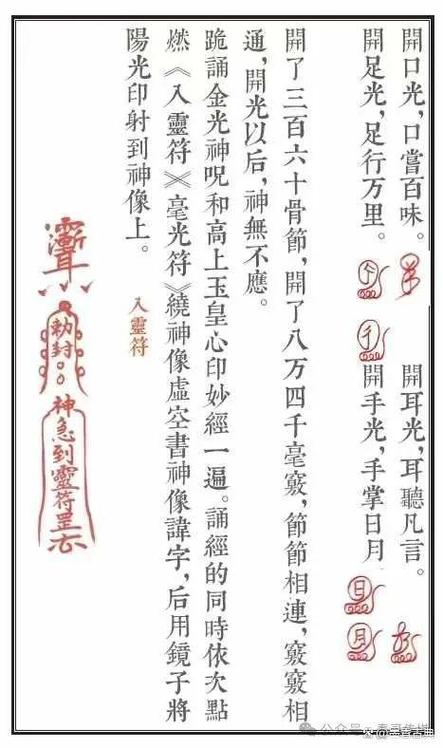 開口光，口嘗百味。 開耳光，耳聽凡言。
開足光，足行万里。 行 開手光，手掌日月 日 月
開了三百六十骨節，開了八万四千毫竅，節節相連，竅竅相
通，開光以后，神無不應。
跪誦金光神咒和高上玉皇心印妙經一遍。誦經的同時依次點
燃《入靈符》《毫光符》繞神像虛空書神像諱字，后用鏡子將
陽光印射到神像上。
入靈符
勅封
神急到靈符罡
公众号